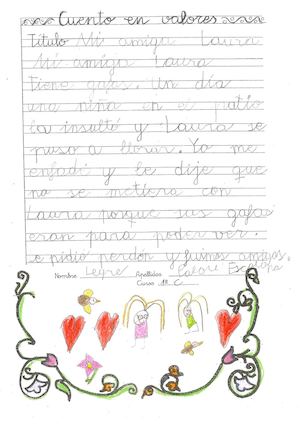 Cuento en valores
Título Mi amiga Laura
Mi amiga Laura
tiene gafas. Un día
una niña en el patio
la insultó y Laura se
puso a llorar. Yo me
enfadé y le dije que
no se metiera con
Laura porque sus gafas
eran para poder ver.
Le pidió perdón y fuimos amigas.
Nombre Leyre Apellidos
Curso 1º C